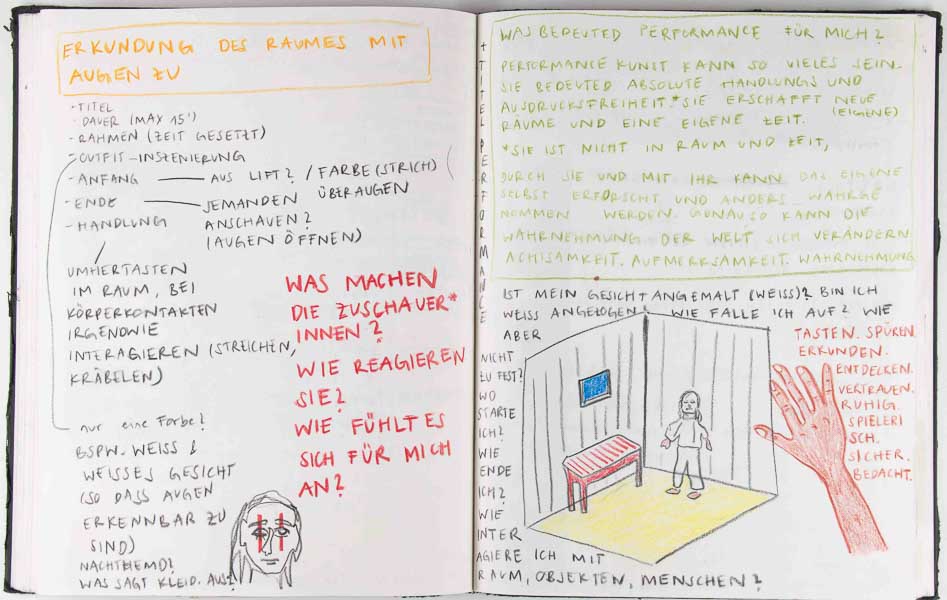 ERKUNDUNG DES RAUMES MIT
AUGEN ZU
- TITEL
- DAUER (MAX 15')
- RAHMEN (ZEIT GESETZT)
- OUTFIT - INSZENIERUNG
- ANFANG — AUS LIFT? / FARBE (STRICH) ÜBER AUGEN
- ENDE — JEMANDEN
ANSCHAUEN?
(AUGEN ÖFFNEN)
- HANDLUNG
UMHERTASTEN
IM RAUM, BEI
KÖRPERKONTAKTEN
IRGENDWIE
INTERAGIEREN (STREICHEN,
KRÄBELEN)
nur eine Farbe?
BSPW. WEISS &
WEISSES GESICHT
(SO DASS AUGEN
ERKENNBAR ZU
SIND)
NACHTHEMD?
WAS SAGT KLEID. AUS?
WAS MACHEN
DIE ZUSCHAUER*
INNEN?
WIE REAGIEREN
SIE?
WIE FÜHLT ES
SICH FÜR MICH
AN?
+ TITEL PERFORMANCE
WAS BEDEUTED PERFORMANCE FÜR MICH?
PERFORMANCE KUNST KANN SO VIELES SEIN.
SIE BEDEUTED ABSOLUTE HANDLUNGS UND
AUSDRUCKSFREIHEIT.* SIE ERSCHAFFT NEUE
RÄUME UND EINE EIGENE ZEIT. (EIGENE)
*SIE IST NICHT IN RAUM UND ZEIT,
DURCH SIE UND MIT IHR KANN DAS EIGENE
SELBST ERFORSCHT UND ANDERS WAHRGE
NOMMEN WERDEN. GENAUSO KANN DIE
WAHRNEHMUNG DER WELT SICH VERÄNDERN.
ACHTSAMKEIT. AUFMERKSAMKEIT. WAHRNEHMUNG
IST MEIN GESICHT ANGEMALT (WEISS)? BIN ICH
WEISS ANGEZOGEN? WIE FALLE ICH AUF? WIE
ABER
NICHT
ZU FEST?
WO
STARTE
ICH?
WIE
ENDE
ICH?
WIE
INTER
AGIERE ICH MIT
RAUM, OBJEKTEN, MENSCHEN?
TASTEN. SPÜREN.
ERKUNDEN.
ENTDECKEN.
VERTRAUEN.
RUHIG.
SPIELERI
SCH.
SICHER.
BEDACHT.